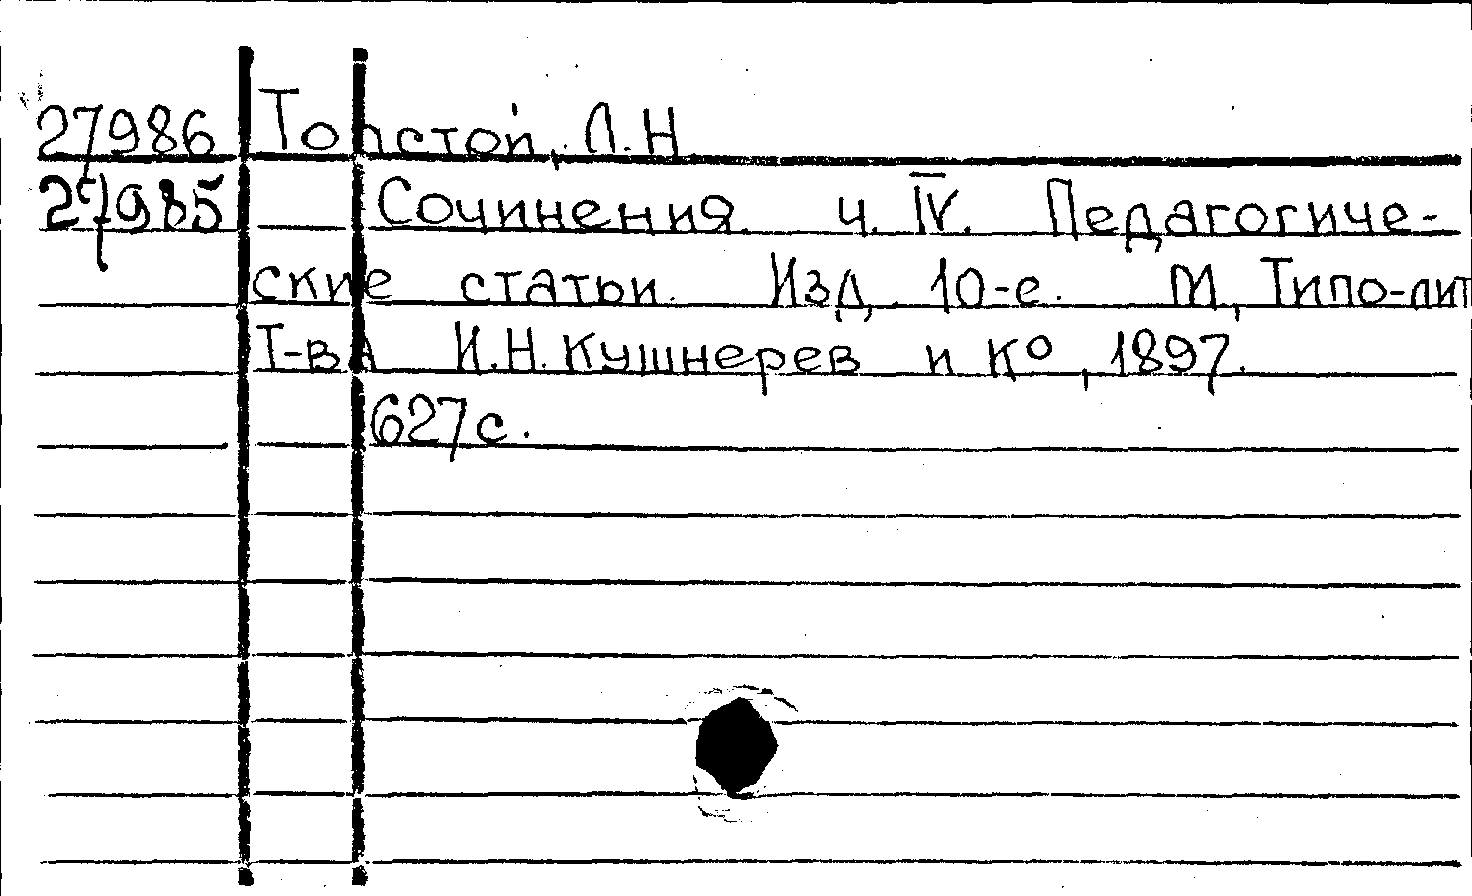 27986 Толстой, Л.Н
27985 Сочинения. ч. IV. Педагогиче-
ские статьи. Изд. 10-е. М, Типо-лит
Т-вА И.Н. Кушнерев и Ко, 1897.
627с.